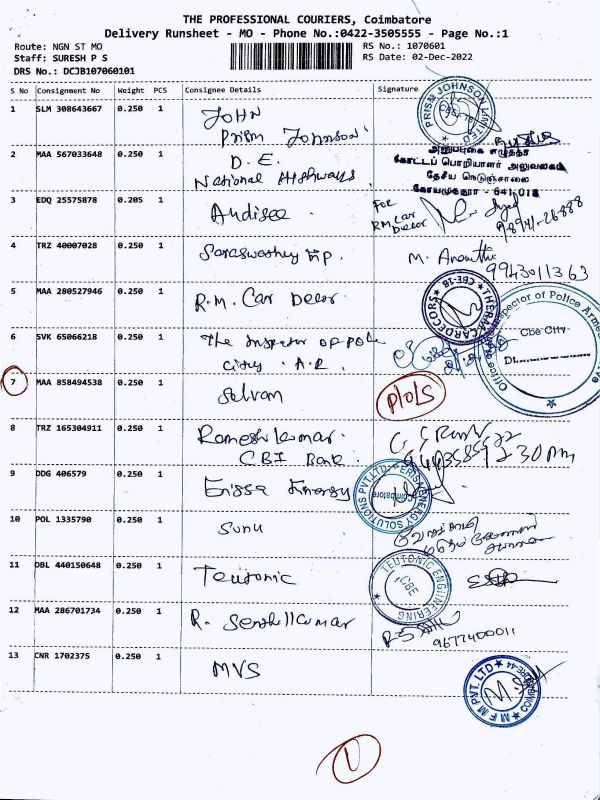 THE PROFESSIONAL COURIERS, Coimbatore
Delivery Runsheet - MO - Phone No.:0422-3505555 - Page No.:1
Route: NGN ST MO
RS No.: 1070601
Staff: SURESH P S
RS Date: 02-Dec-2022
DRS No.: DCJB107060101
S No Consignment No Weight PCS Consignee Details Signature
1 SLM 308643667 0.250 1 JOHN
Prism Johnson
PRISM JOHNSON LIMITED
2 MAA 567033648 0.250 1 D.E.
National Highways
அனுப்புகை எழுத்தர்
கோட்டப் பொறியாளர் அலுவலகம்
தேசிய நெடுஞ்சாலை
கோயமுத்தூர் - 641 018
3 EDQ 25575878 0.205 1 Audisee
For
RM Car
Decor
98941-26888
4 TRZ 40007028 0.250 1 Saraswathy
M. Ananthi
9943011363
5 MAA 280527946 0.250 1 R.M. Car Decor
CBE-18
6 SVK 65066218 0.250 1 The Inspector OF POLI
City. A.R.
Office of the Inspector of Police Armed
Cbe City
Dt.
7 MAA 858494538 0.250 1 Selvam
P/O/S
8 TRZ 165304911 0.250 1 Rameshkumar.
CBI Bank.
2.30 pm
9 DDG 406579 0.250 1 Erissa Energy
ENERGY SOLUTIONS PVT.LTD.
Coimbatore
10 POL 1335790 0.250 1 Sunu
11 DBL 440150648 0.250 1 Teutonic
TEUTONIC ENGINEERING
CBE
12 MAA 286701734 0.250 1 R. Senthilkumar
9677400011
13 CNR 1702375 0.250 1 MVS
M F M PVT. LTD
1